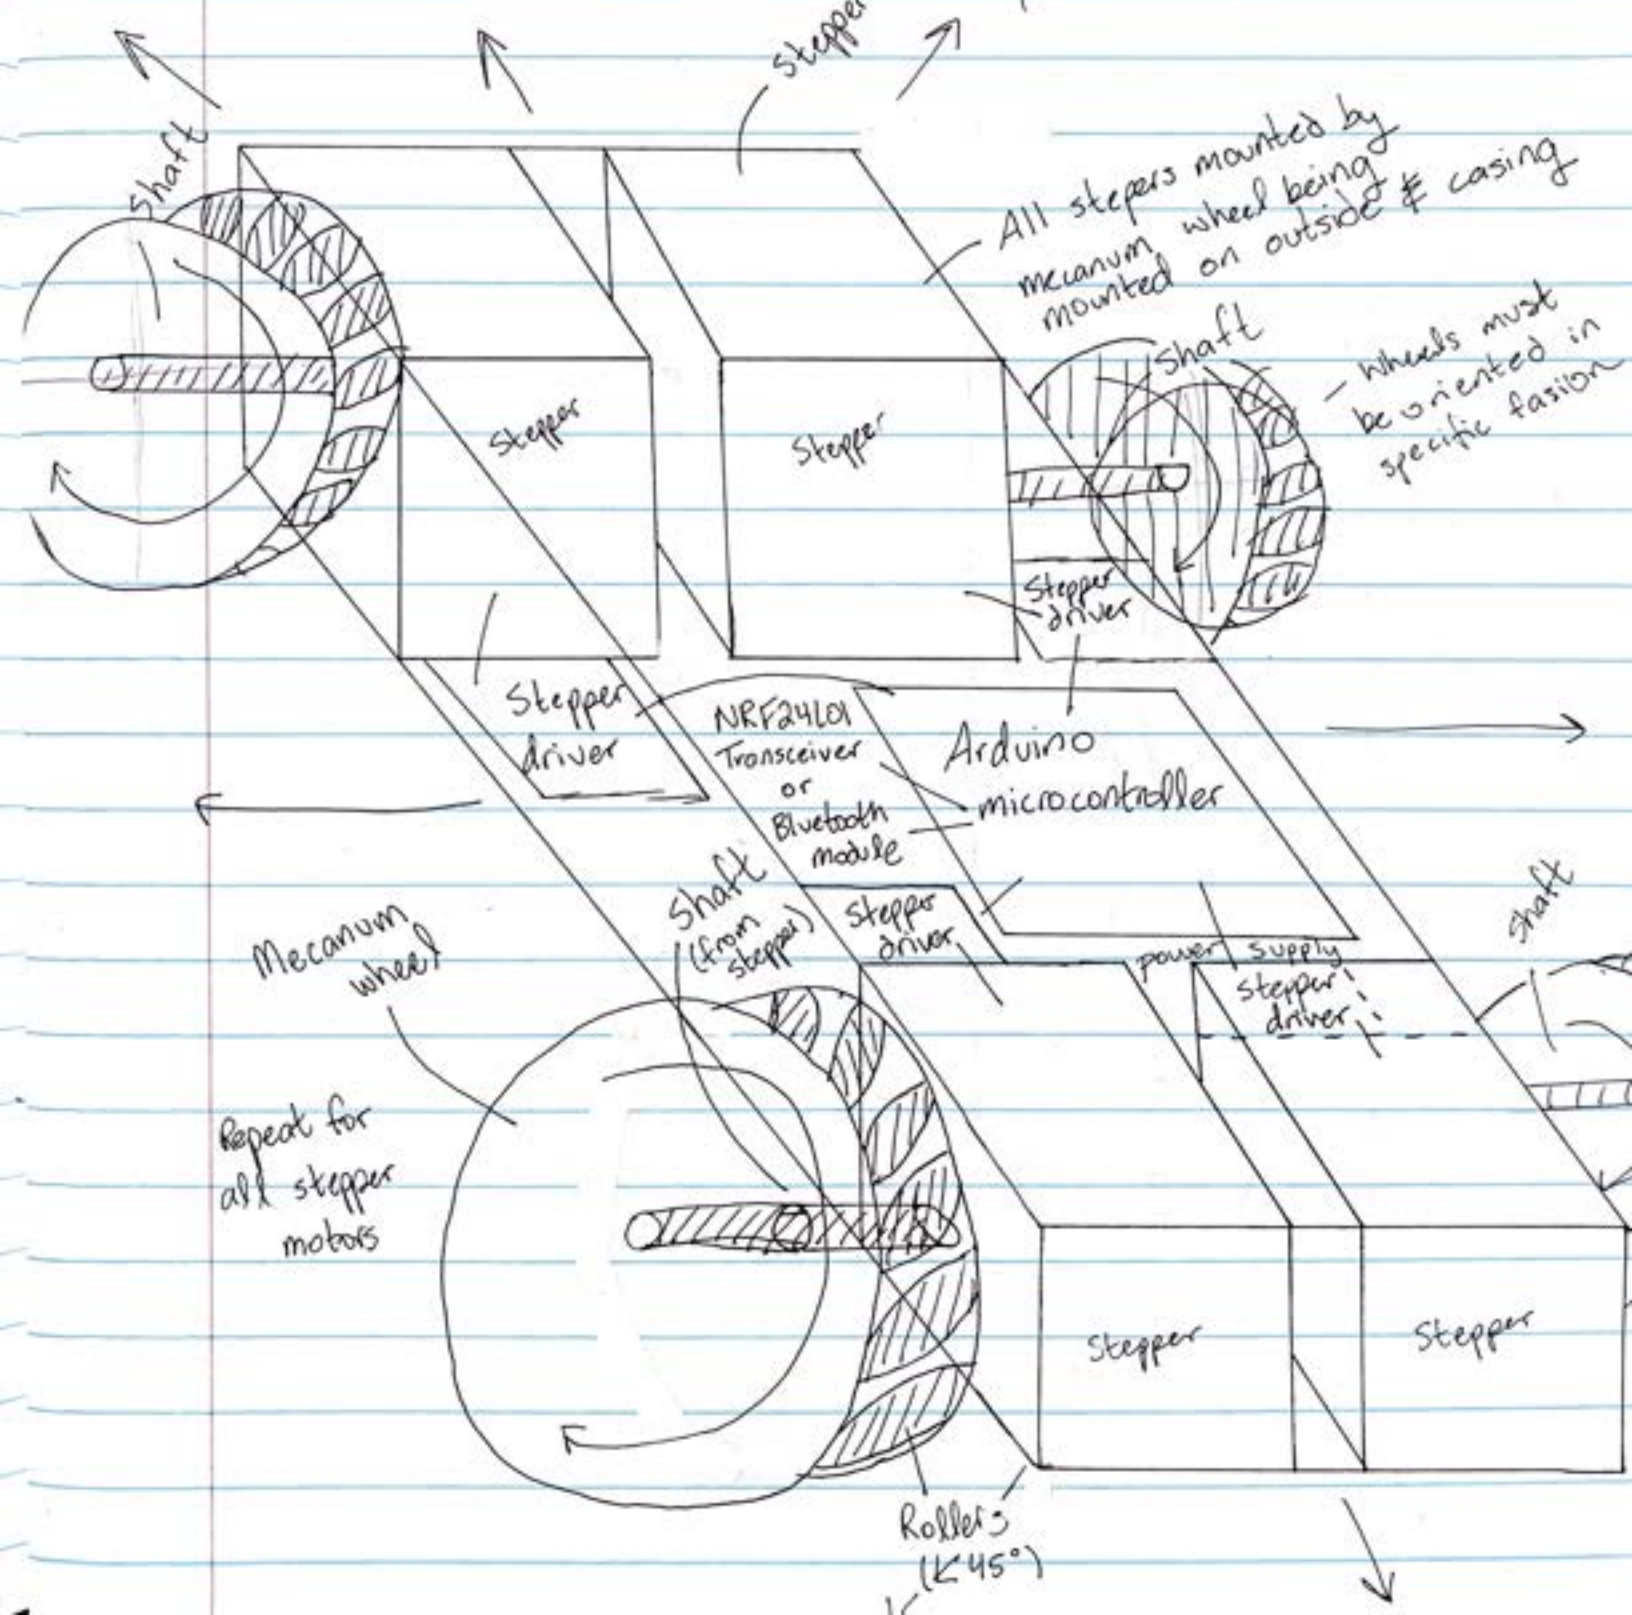 Stepper
Shaft
All stepers mounted by
mecanum wheel being
mounted on outside & casing
Shaft
Wheels must
be oriented in
specific fasion
Stepper
Stepper
Stepper
driver
Stepper
driver
NRF24L01
Transceiver
or
Bluetooth
module
Arduino
microcontroller
Shaft
(from
stepper)
Stepper
driver
power supply
Stepper
driver
Shaft
Mecanum
wheel
Repeat for
all stepper
motors
Stepper
Stepper
Rollers
(∠45°)